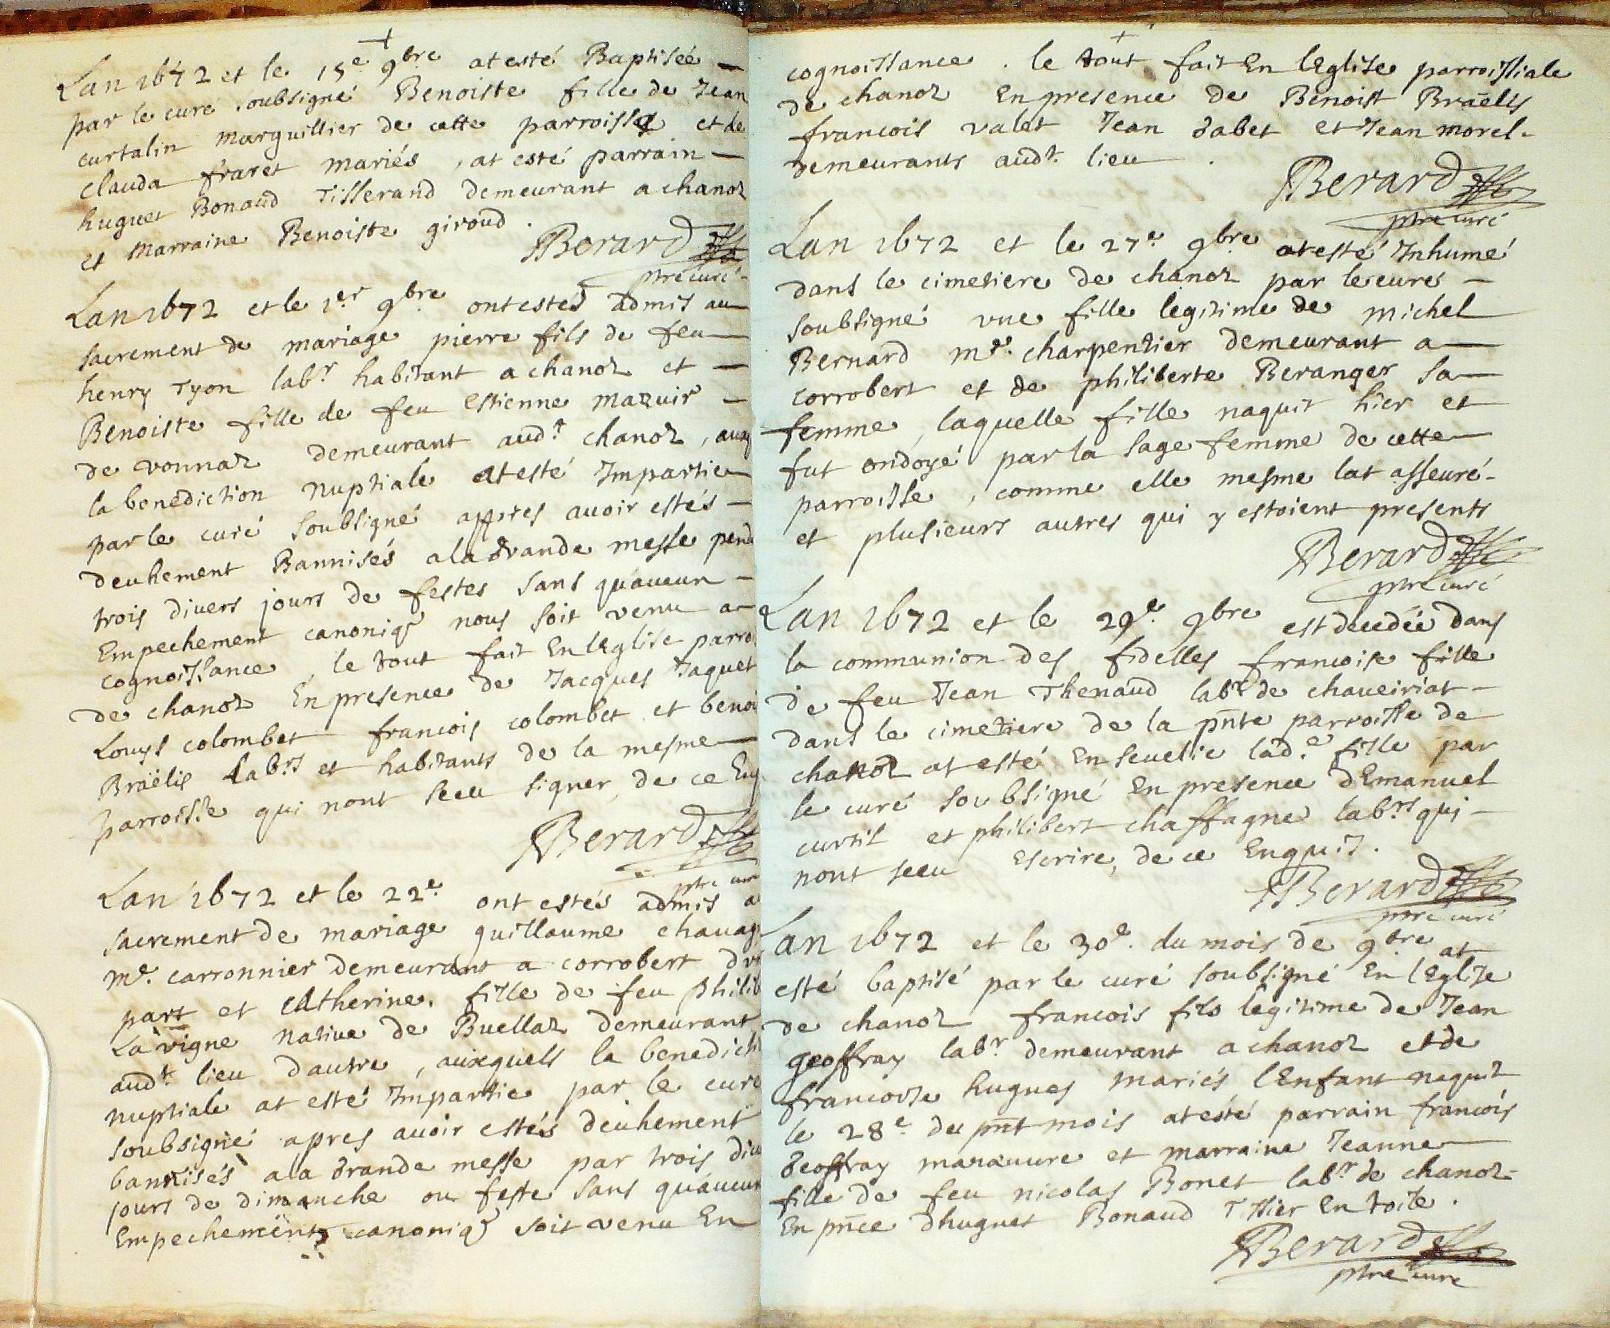 Lan 1672 et le 15e 9bre at esté Baptisée
par le curé soubsigné Benoiste fille de Jean
curtalin marguillier de cette parroisse et de
clauda fraret mariés, at esté parrain
huguet Bonaud Tisserand demeurant a chanoz
et Marraine Benoiste giroud.
Berard
ptre curé
Lan 1672 et le 1er 9bre ont estés admis au
sacrement de mariage pierre fils de feu
henry Tyon labr habitant a chanoz et
Benoiste fille de feu Estienne mazuir
de vonnaz demeurant audt chanoz,
la benediction nuptiale at esté Impartie
par le curé soubsigné appres avoir estés
deuhement Bannisés a la Grande messe
trois divers jours de festes sans quaucun
Empechement canoniq nous soit venu a
cognoissance, le tout fait En lEglise
de chanoz En presence de Jacques Jaquet
Louys colombet francois colombet et
Braëlis Labrs et habitants de la mesme
parroisse qui nont sceu signer, de ce
Berard
ptre
Lan 1672 et le 22e ont estés admis a
sacrement de mariage guillaume
me carronnier demeurant a corrobert
part et Catherine fille de feu
La vigne native de Buellaz demeurant
audt lieu dautre, auxquels la
nuptiale at esté Impartie par le curé
soubsigné apres avoir estés deuhement
bannisés a la Grande messe par trois
jours de dimanche ou feste sans quaucun
Empechement canoniq soit venu En
cognoissance. le tout fait En lEglise parroissiale
de chanoz En presence de Benoist Braëlis
francois valet Jean Jabet et Jean morel
demeurants audt lieu.
Berard
ptre curé
Lan 1672 et le 27e 9bre at esté Inhumé
dans le cimetiere de chanoz par le curé
soubsigné une fille legitime de michel
Bernard me charpentier demeurant a
corrobert et de philiberte Beranger sa
femme, laquelle fille naquit hier et
fut ondoyé par la sage femme de cette
parroisse, comme elle mesme lat asseuré
et plusieurs autres qui y estoient presents
Berard
ptre curé
Lan 1672 et le 29e 9bre est decedée dans
la communion des fidelles francoise fille
de feu Jean Thenaud labr de chaveiriat
dans le cimetiere de la pnte parroisse de
chanoz at esté Ensevelie lade fille par
le curé soubsigné En presence dEmanuel
curtil et philibert chaffagne labrs qui
nont sceu Escrire, de ce Enquis.
Berard
ptre curé
Lan 1672 et le 30e du mois de 9bre at
esté baptisé par le curé soubsigné En lEglise
de chanoz francois fils legitime de Jean
geoffray labr demeurant a chanoz et de
francoise hugues mariés lEnfant naquit
le 28e du pnt mois at esté parrain francois
Geoffray manœuvre et marraine Jeanne
fille de feu nicolas Bonet labr de chanoz
En pnce dhuguet Bonaud Tissier En toile.
Berard
ptre curé